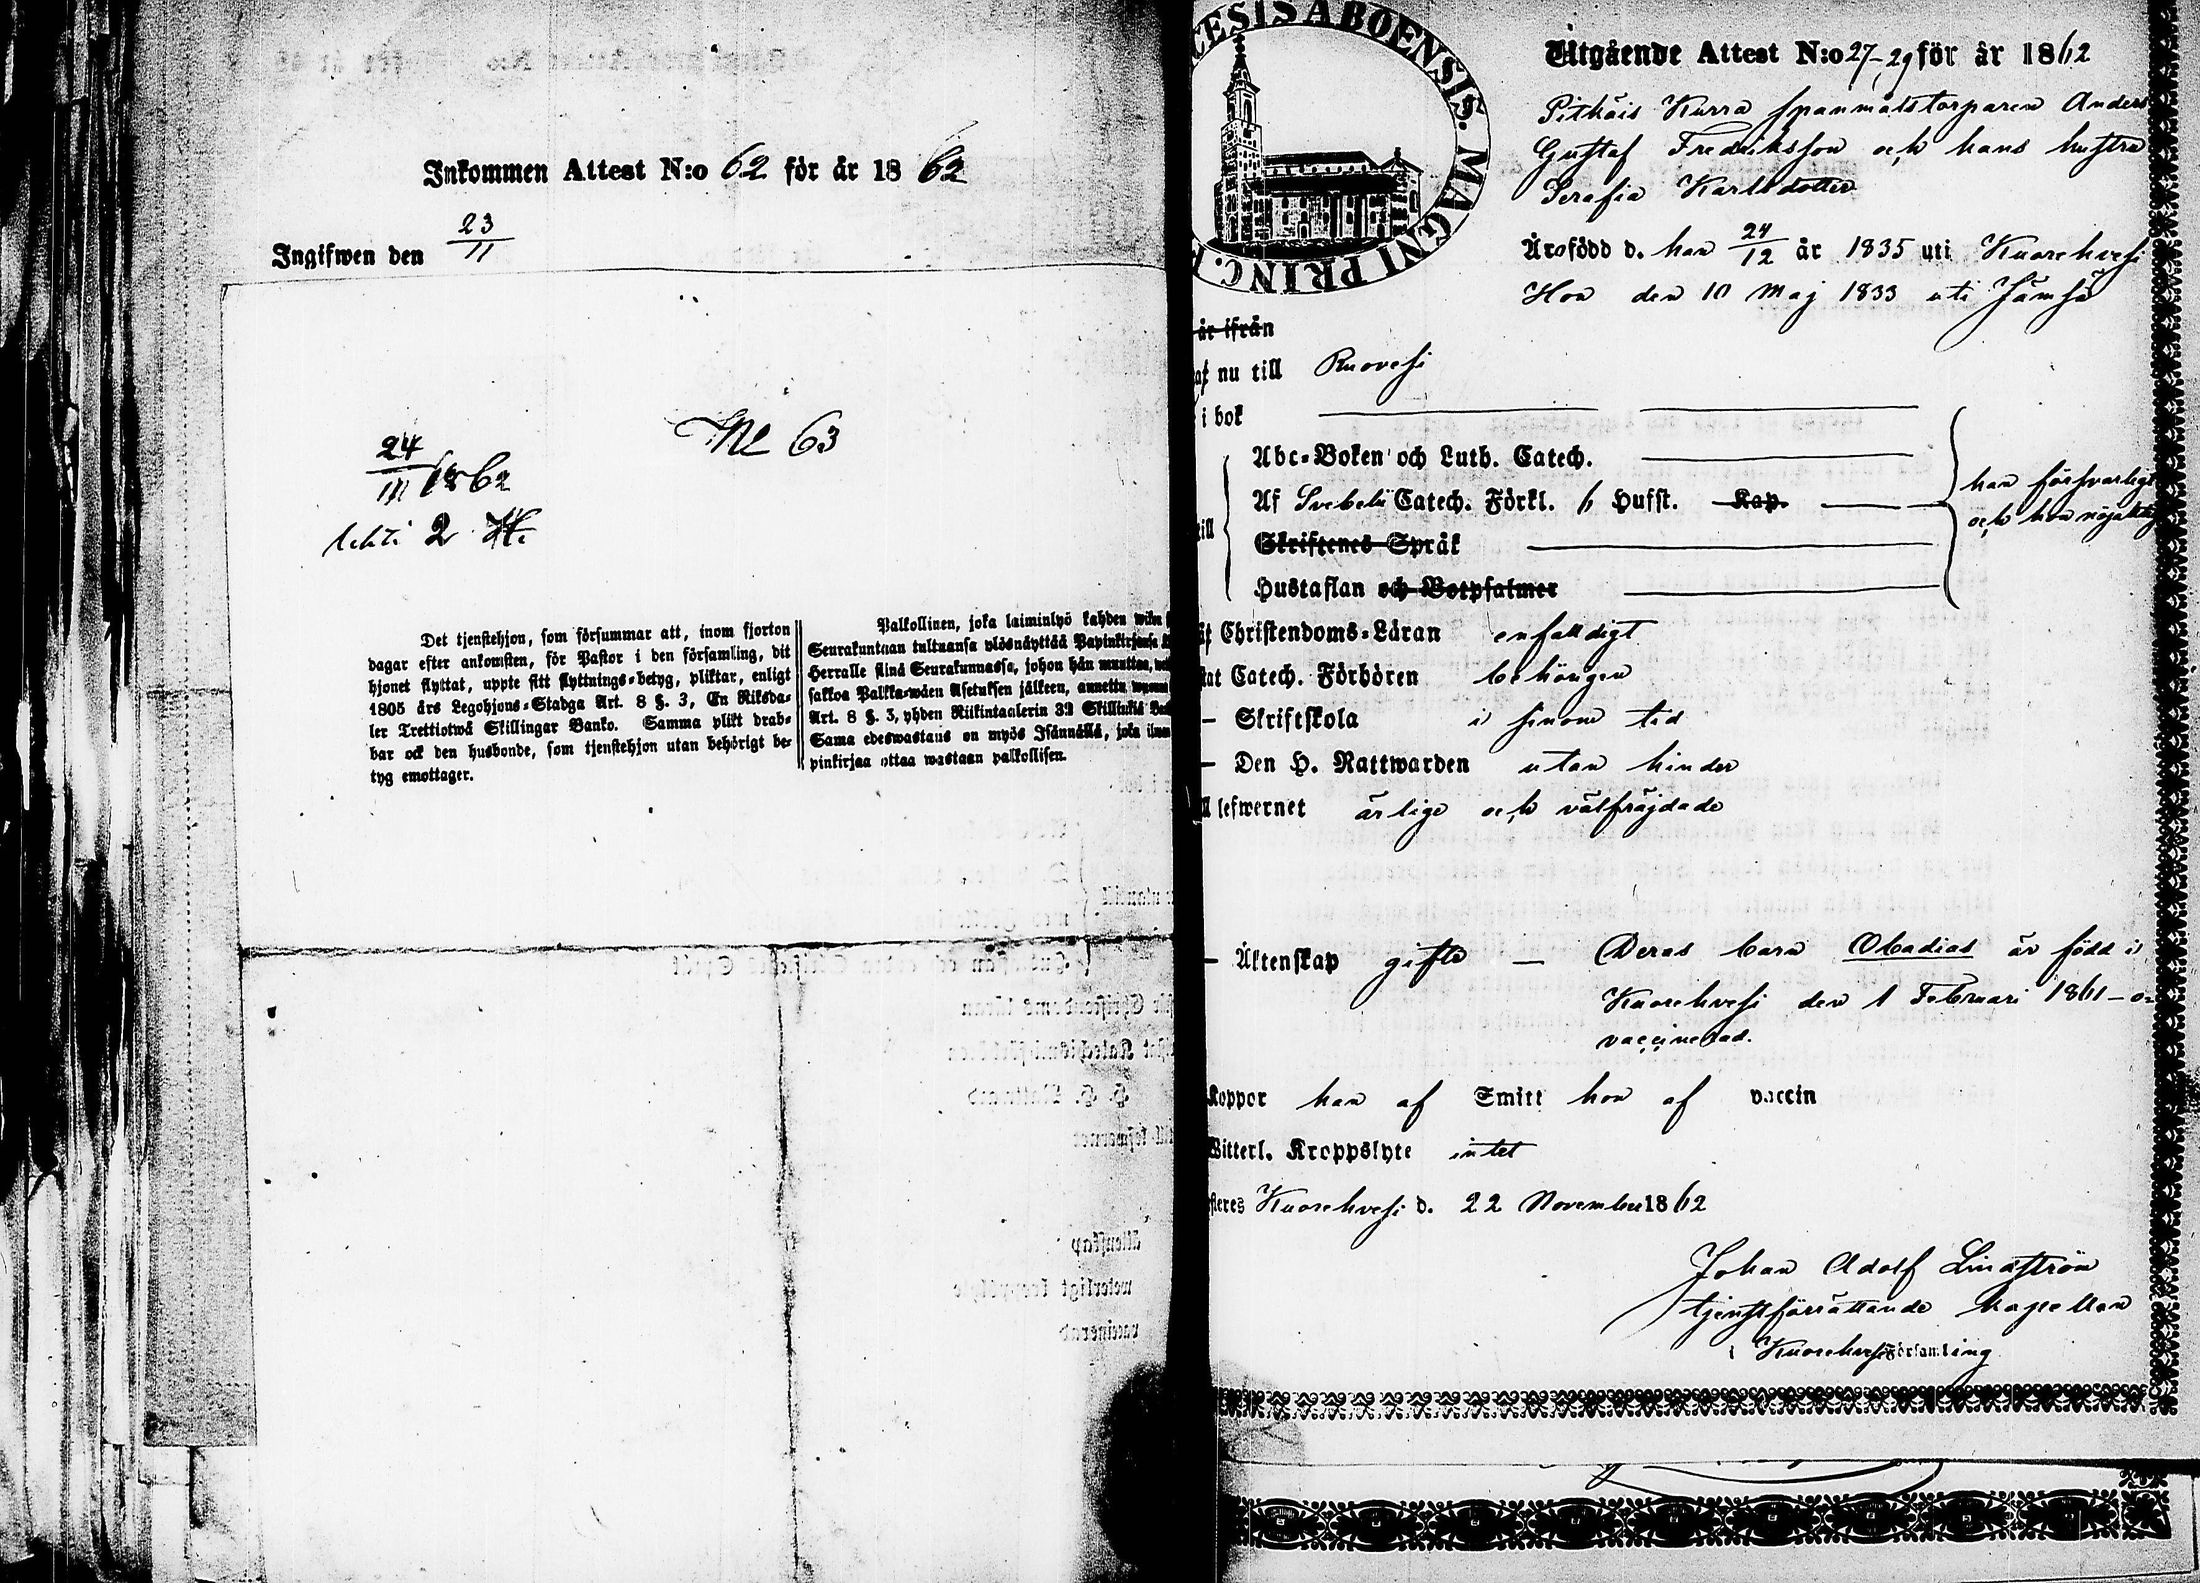 Inkommen Attest N:o 62 för år 1862
Ingifwen den 23/11
№ 63
24/11 1862
lehti 2
Det tjenstehjon, som försummar att, inom fjorton
dagar efter ankomsten, för Pastor i den församling, dit
hjonet flyttat, uppte sitt flyttnings-betyg, pliktar, enligt
1805 års Legohjons-Stadga Art. 8 §. 3, En Riksda-
ler Trettiotwå Skillingar Banko. Samma plikt drab-
bar ock den husbonde, som tjenstehjon utan behörigt be-
tyg emottager.
Palkollinen, joka laiminlyö kahden wikon
Seurakuntaan tultuansa ylösnäyttää Papinkirjansa
Herralle siinä Seurakunnassa, johon hän muuttaa,
sakkoa Palkka-wäen Asetuksen jälkeen, annettu wuonna
Art. 8 §. 3, yhden Riikintaalerin 32 Skillinkiä
Sama edeswastaus on myös Isännällä, joka ilman
pinkirjaa ottaa wastaan palkollisen.
ESIS ABOENSIS. MAGNI PRINC.
Utgående Attest N:o 27-29 för år 1862
Pitkäis Kurra spanmålstorparen Anders
Gustaf Fredriksson och hans hustru
Serafia Karlsdotter
Äro född d. han 24/12 år 1835 uti Kuorehvesi
Hon den 10 Maj 1833 uti Jämsä
är ifrån
nu till Ruovesi
i bok
Abc-Boken och Luth. Catech.
Af Svebelii Catech. Förkl. Hufst. Kap.
Skriftenes Språk
Hustaflan och Botpsalmer
han försvarligt
och hon nöjaktigt
Christendoms-Läran enfaldigt
Catech. Förhören behörigen
— Skriftskola i sinom tid
— Den H. Nattwarden utan hinder
lefwernet ärlige och välfräjdade
— Äktenskap gifte — Deras barn Obadias är född i
Kuorehvesi den 1 Februari 1861 –
vaccinerad.
Koppor han af Smitt hon af vaccin
Witterl. Kroppslyte intet
Kuorehvesi d. 22 November 1862
Johan Adolf Lindström
tjenstförrättande kapellan
i Kuorehvesi Församling